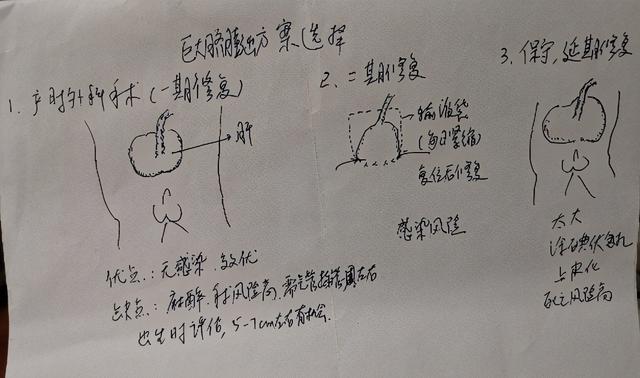 巨大脐膨出方案选择
1. 产时外科手术(一期修复)
肝
优点:无感染、效优
缺点:麻醉、手术风险高、需气管插管1周左右
出生时评估,5-7cm左右有机会
2. 二期修复
输液袋
(每日紧缩)
复位后修复
感染风险
3. 保守,延期修复
太大
涂碘伏
上皮化
死亡风险高